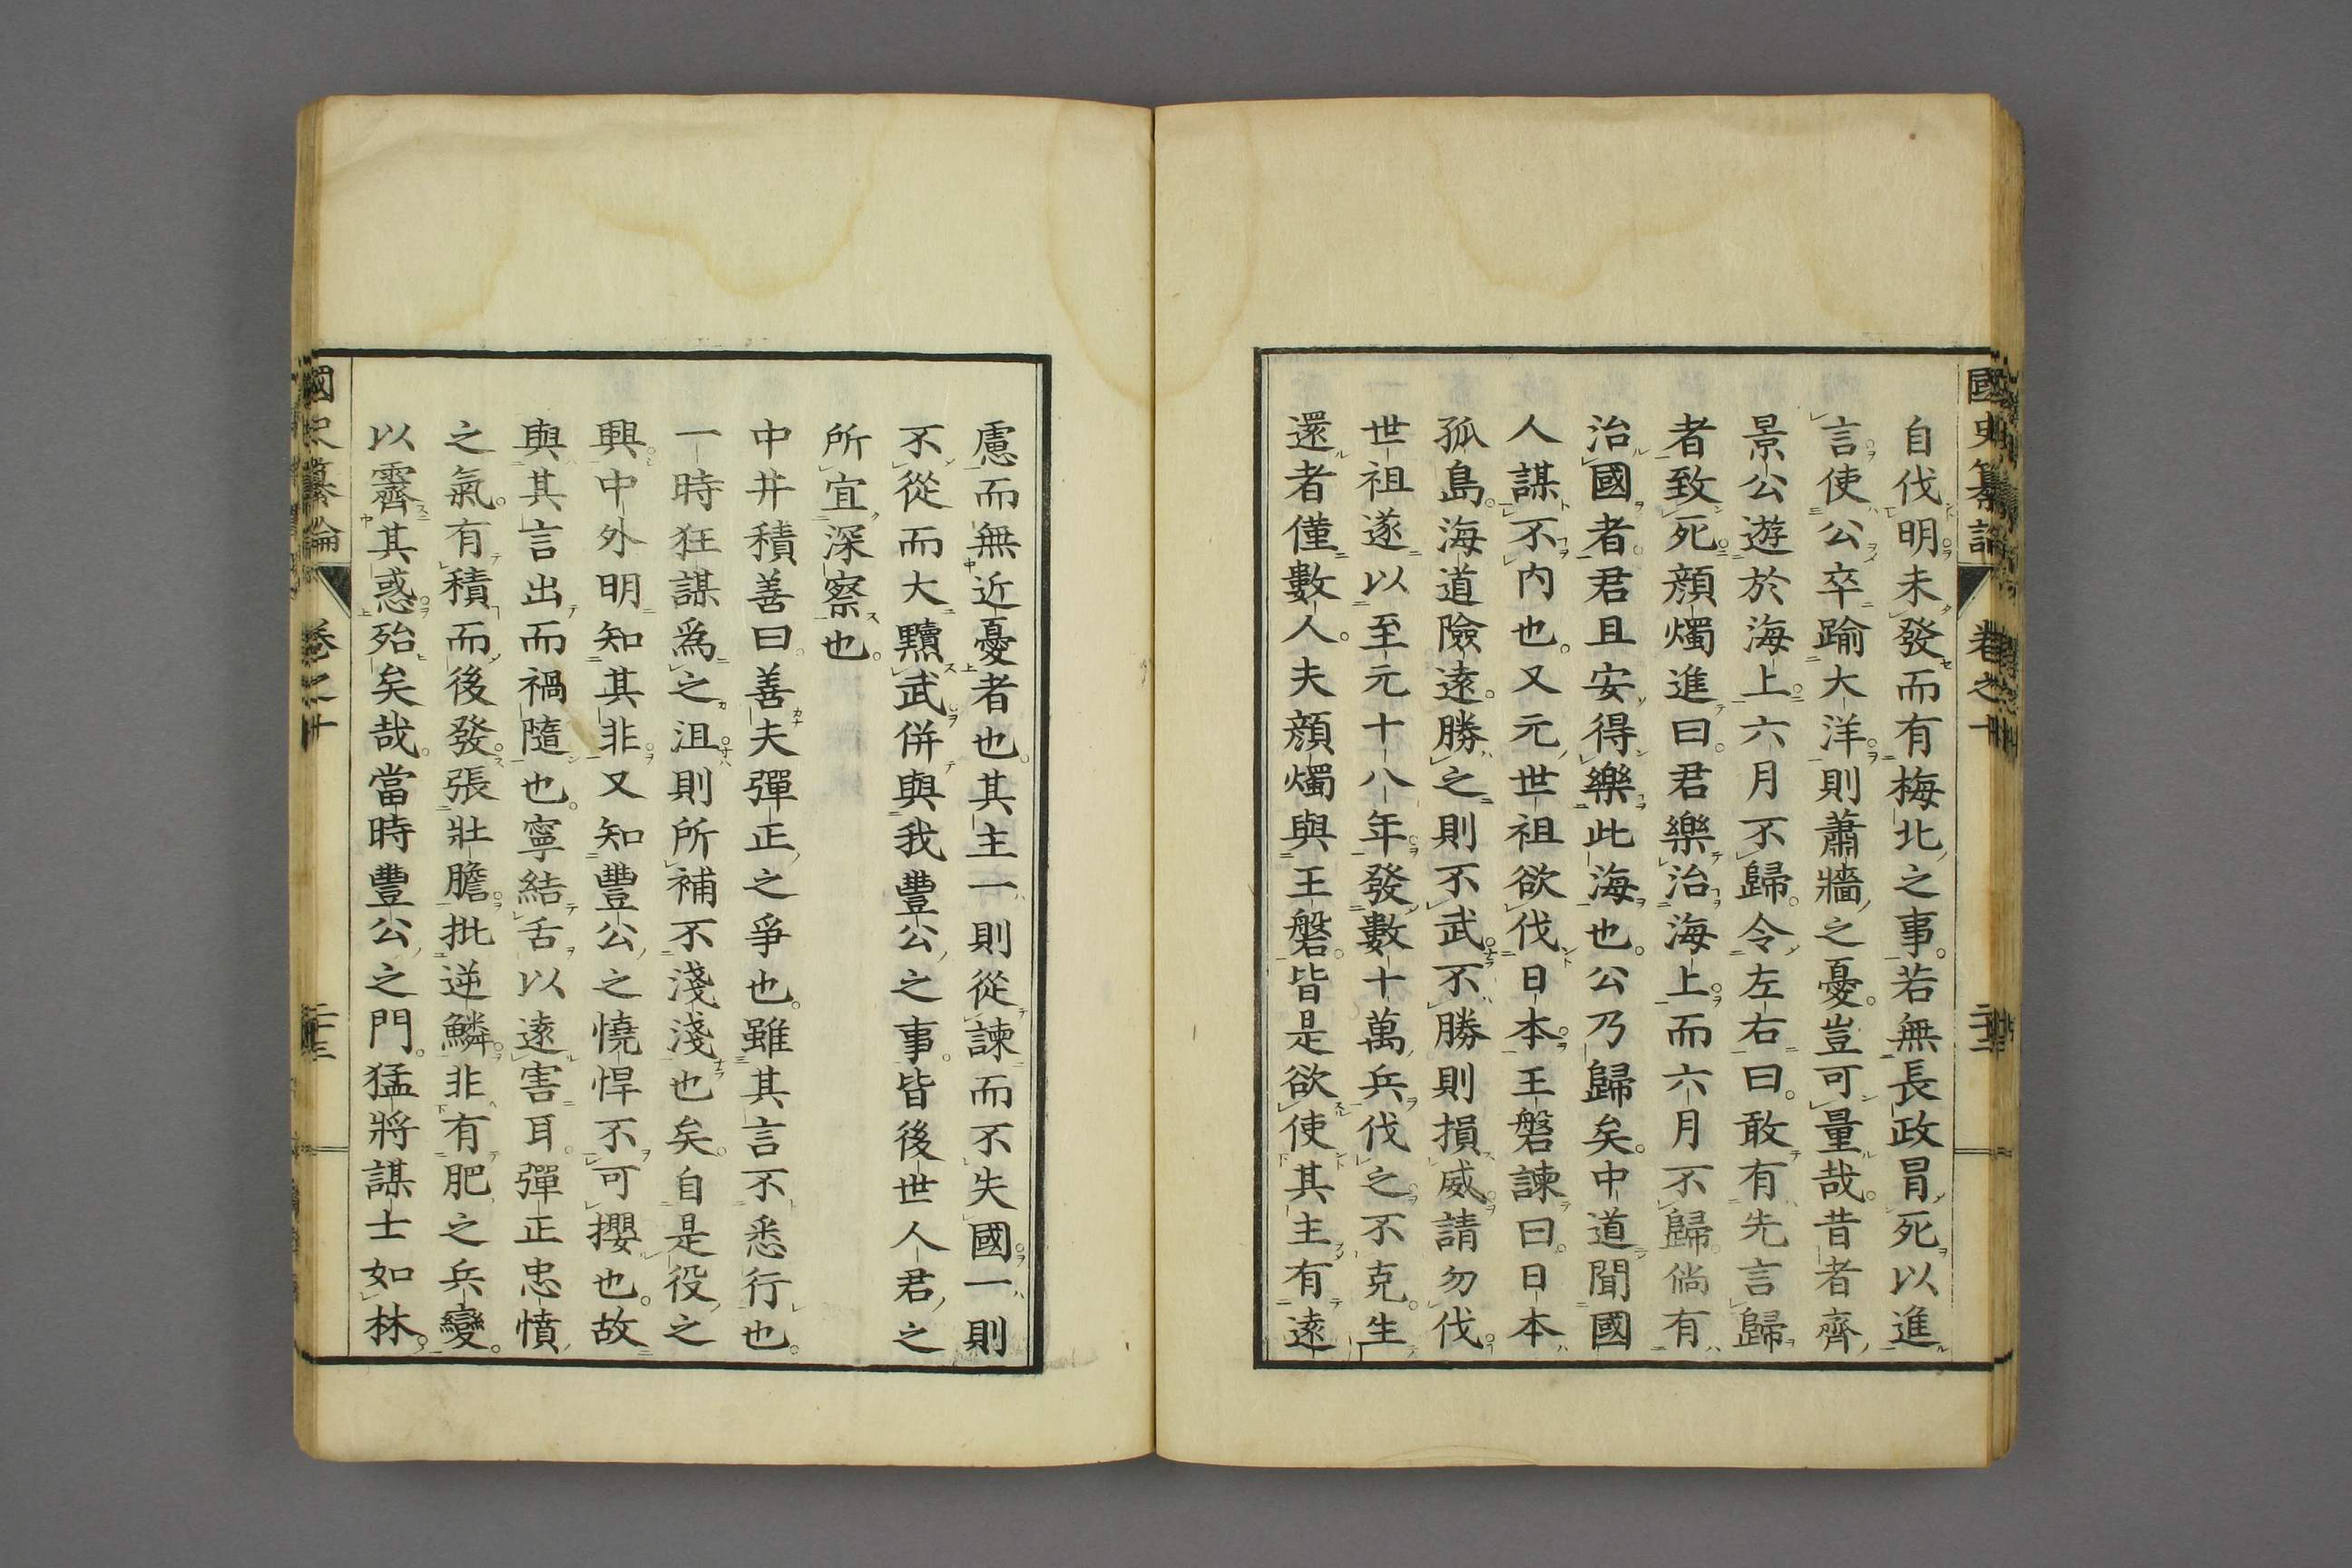 國史纂論
卷之十
自伐明未發而有梅北之事若無長政冒死以進
言使公卒踰大洋則蕭牆之憂豈可量哉昔者齊
景公遊於海上六月不歸令左右曰敢有先言歸
者致死顔燭進曰君樂治海上而六月不歸倘有
治國者君且安得樂此海也公乃歸矣中道聞國
人謀不内也又元世祖欲伐日本王磐諫曰日本
孤島海道險遠勝之則不武不勝則損威請勿伐
世祖遂以至元十八年發數十萬兵伐之不克生
還者僅數人夫顔燭與王磐皆是欲使其主有遠
慮而無近憂者也其主一則從諫而不失國一則
不從而大黷武併與我豐公之事皆後世人君之
所宜深察也
中井積善曰善夫彈正之爭也雖其言不悉行也
一時狂謀爲之沮則所補不淺淺也矣自是役之
興中外明知其非又知豐公之憢悍不可攖也故
與其言出而禍隨也寧結舌以遠害耳彈正忠憤
之氣有積而後發張壯膽批逆鱗非有肥之兵變
以霽其惑殆矣哉當時豐公之門猛將謀士如林
國史纂論
卷之十
二十三